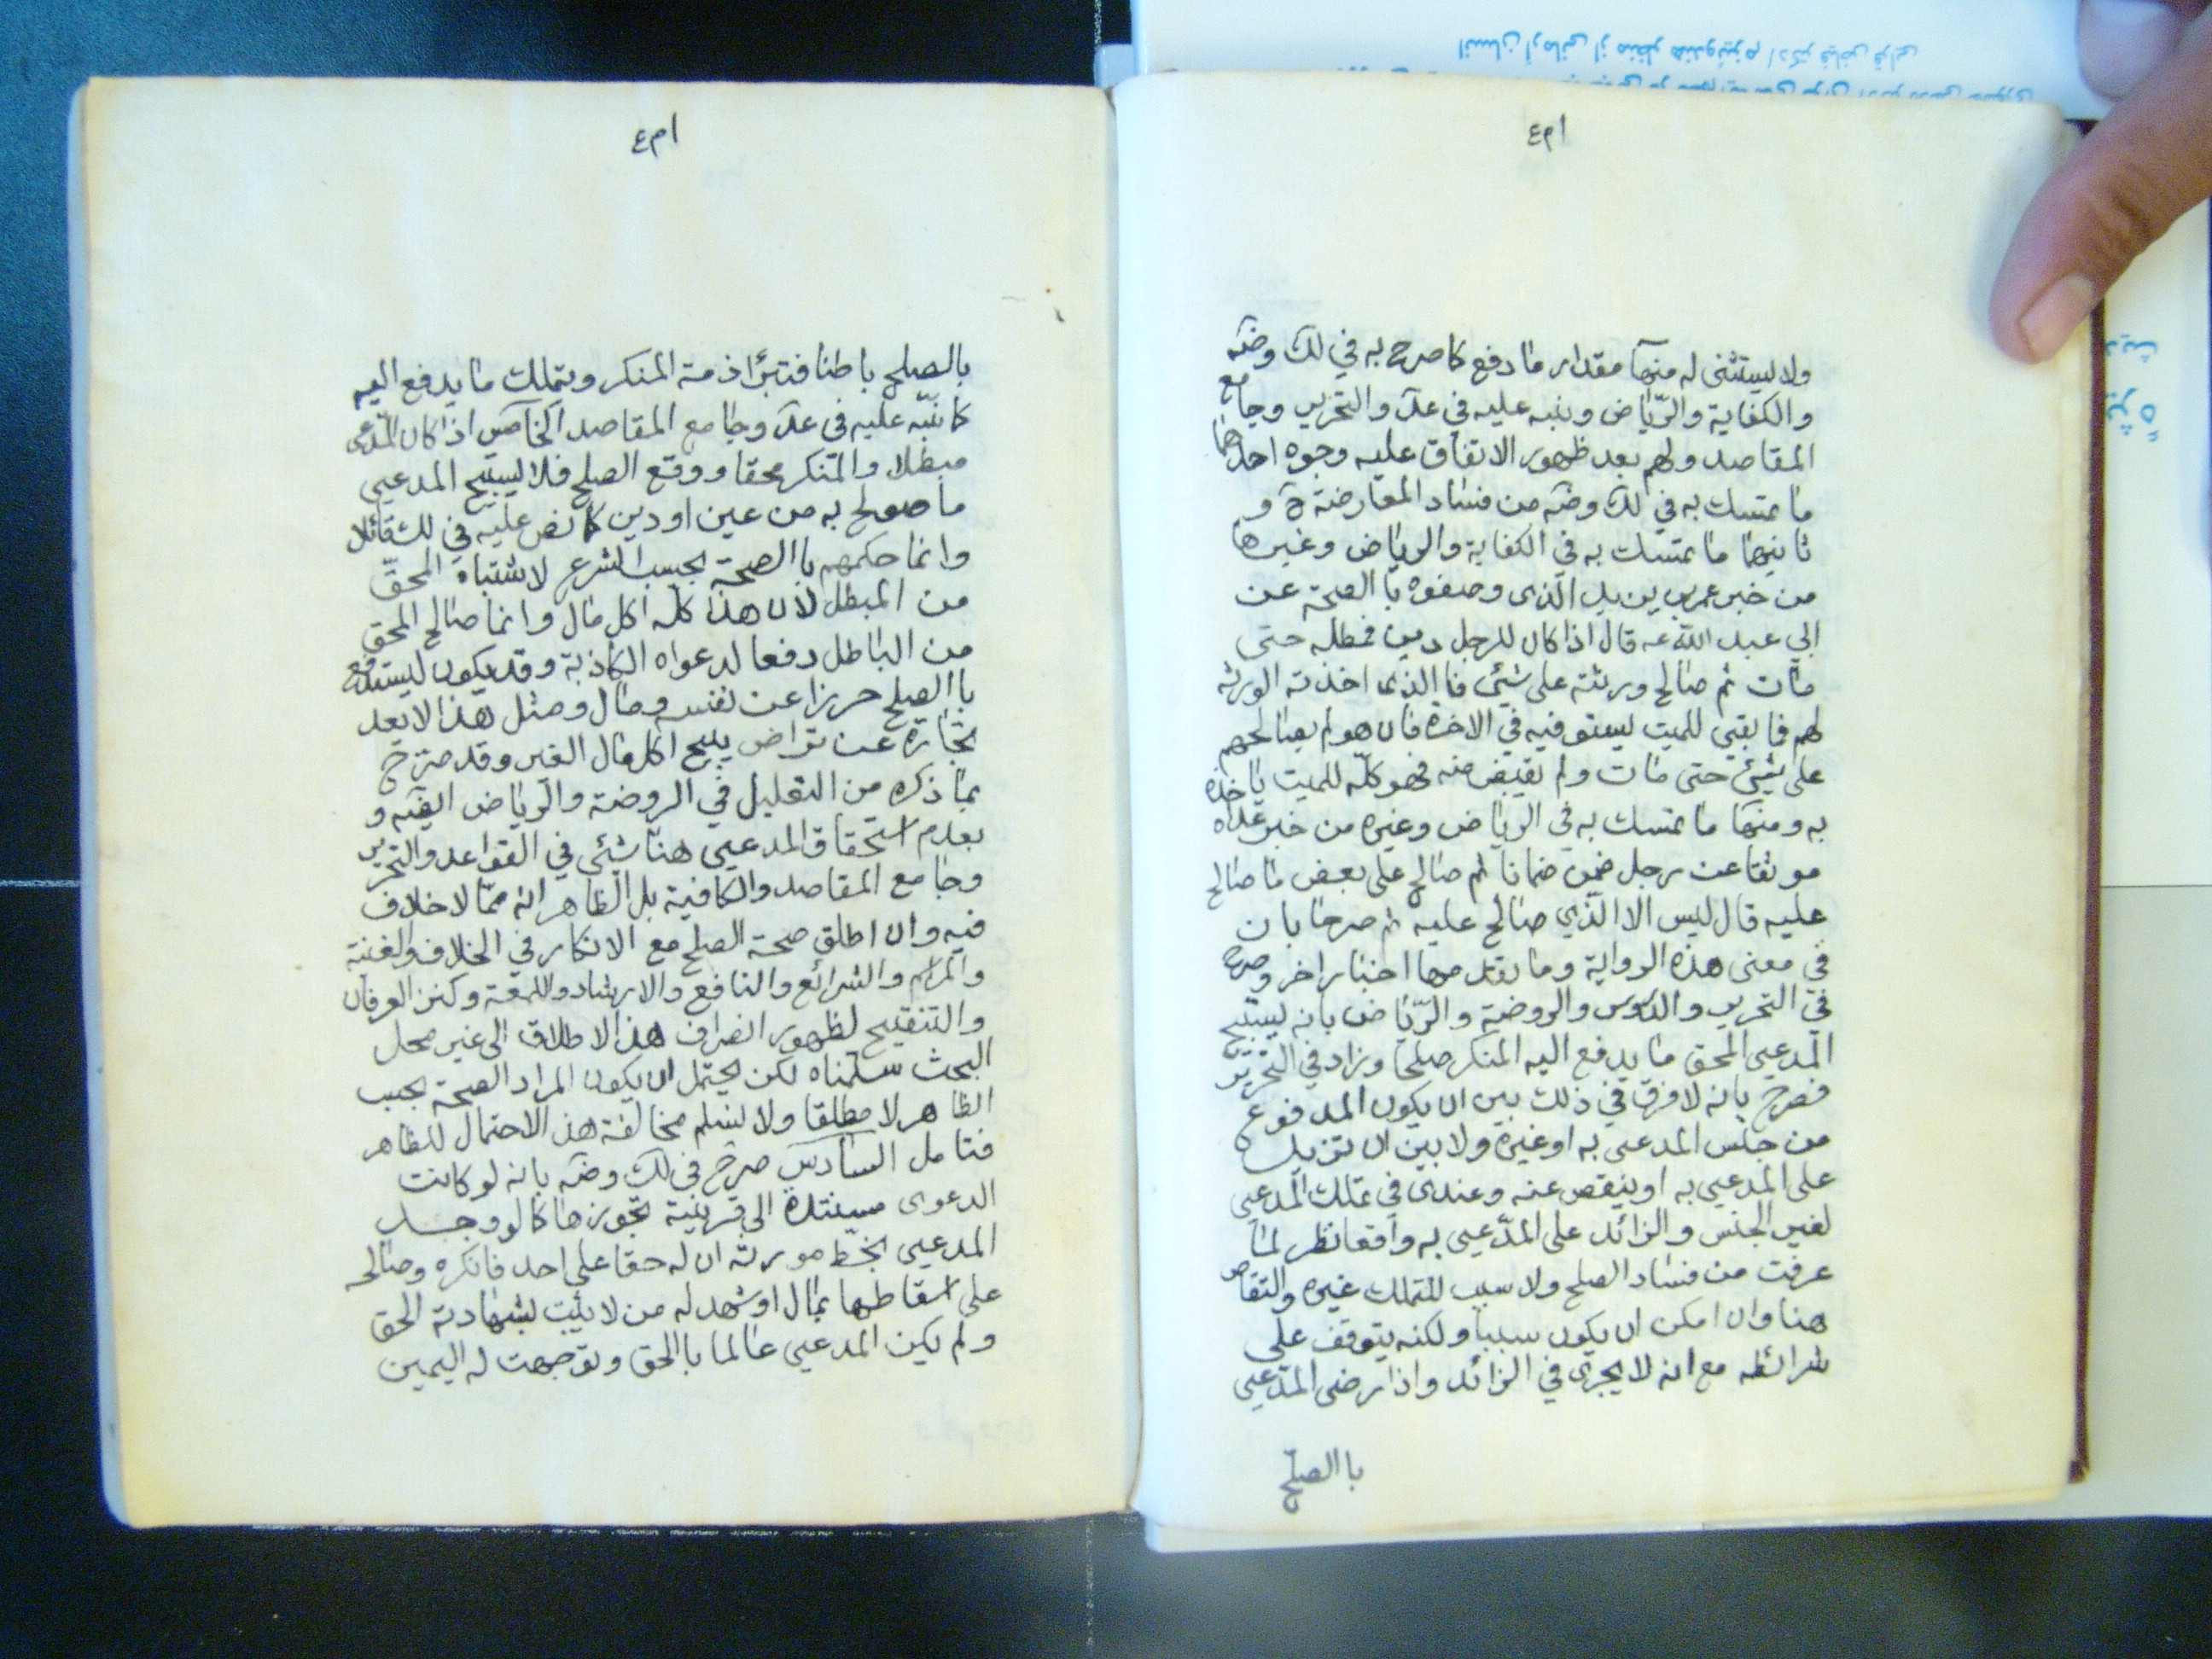 ام٤
ولا يستثنى له منها مقدار ما دفع كما صرح به في لك وضه
والكفاية والرّياض وينبه عليه في عد والتحرير وجامع
المقاصد ولهم بعد ظهور الاتفاق عليه وجوه احدهما
ما يمتسك به في لك وضه من فساد المعارضة ة و
ثانيهما ما يمتسك به في الكفاية والرياض وغيرها
من خبر عمر بن يزيد الّذى وصفوه با الصحة عن
ابي عبد اللّه عه قال اذا كان للرجل دين فمطله حتى
مات ثم صالح ورثته على شئ فا الذى اخذته الورثة
لهم فما بقى للميت يستوفيه في الاخرة فان هو لم يصالحهم
على شئ حتى مات ولم يقبض منه فهو كلّه للميت ياخذه
به ومنها ما يمتسك به في الرياض وغيره من خبر عداه
موثقا عن رجل ضمن ضمانا ثم صالح على بعض ما صالح
عليه قال ليس الا الّذي صالح عليه ثم صرحا بان
في معنى هذه الرواية وما يقدمها اخبار اخر وصرح
في التحرير والدروس والروضة والرّياض بانه يستبيح
المدعى المحق ما يدفع اليه المنكر صلحا وزاد في التحرير
فصرح بانه لا فرق في ذلك بين ان يكون المدفوع
من جنس المدعى به او غيره ولا بين ان تزيد
على المدعى به او ينقص عنه وعندى في تملك المدعى
لغير الجنس والزائد على المدّعى به واقعا نظر لما
عرفت من فساد الصلح ولا سبب للتملك غيره والتقاص
هنا وان امكن ان يكون سببا ولكنه يتوقف على
شرائطه مع انه لا يجرى في الزائد واذا رضى المدّعى
با الصلح
ام٤
بالصلح باطنا فتبرّا ذمة المنكر ويتملك ما يدفع اليه
كما نبّه عليه فى عد وجامع المقاصد الخامس اذا كان المدّعى
مبطلا والمنكر محقا ووقع الصلح فلا يستبيح المدعى
ما صولح به من عين او دين كما نص عليه في لك قائلا
وانما حكمهم با الصحة بحسب الشرع لاشتباه المحقّ
من المبطل لان هذا كلّه اكل مال وانما صالح المحق
من الباطل دفعا لدعواه الكاذبة وقد يكون ليستدفع
با الصلح حرزا عن نفسه ومال ومثل هذا لا يعد
تجارة عن تراض يبيح اكل مال الغير وقد صرّح
بما ذكره من التعليل في الروضة والرّياض ايضه و
بعدم استحقاق المدعى هنا شئ في القواعد والتحرير
وجامع المقاصد والكافية بل الظاهر انه ممّا لا خلاف
فيه وان اطلق صحة الصلح مع الانكار في الخلاف والغنية
والمراسم والشرائع والنافع والارشاد واللمعة وكنز العرفان
والتنقيح لظهور انصراف هذا الاطلاق الى غير محل
البحث سلمناه لكن يحتمل ان يكون المراد الصحة بحسب
الظاهر لا مطلقا ولا نسلم مخالفة هذا الاحتمال للظاهر
فتامل السادس صرح فى لك وضه بانه لو كانت
الدعوى مستندة الى قرينة تجوزها كما لو وجد
المدعى بخطّ مورثه ان له حقا على احد فانكره وصالحه
على اسقاطها بمال او شهد له من لا يثبت بشهادته الحق
ولم يكن المدعى عالما با الحق وتوجهت له اليمين